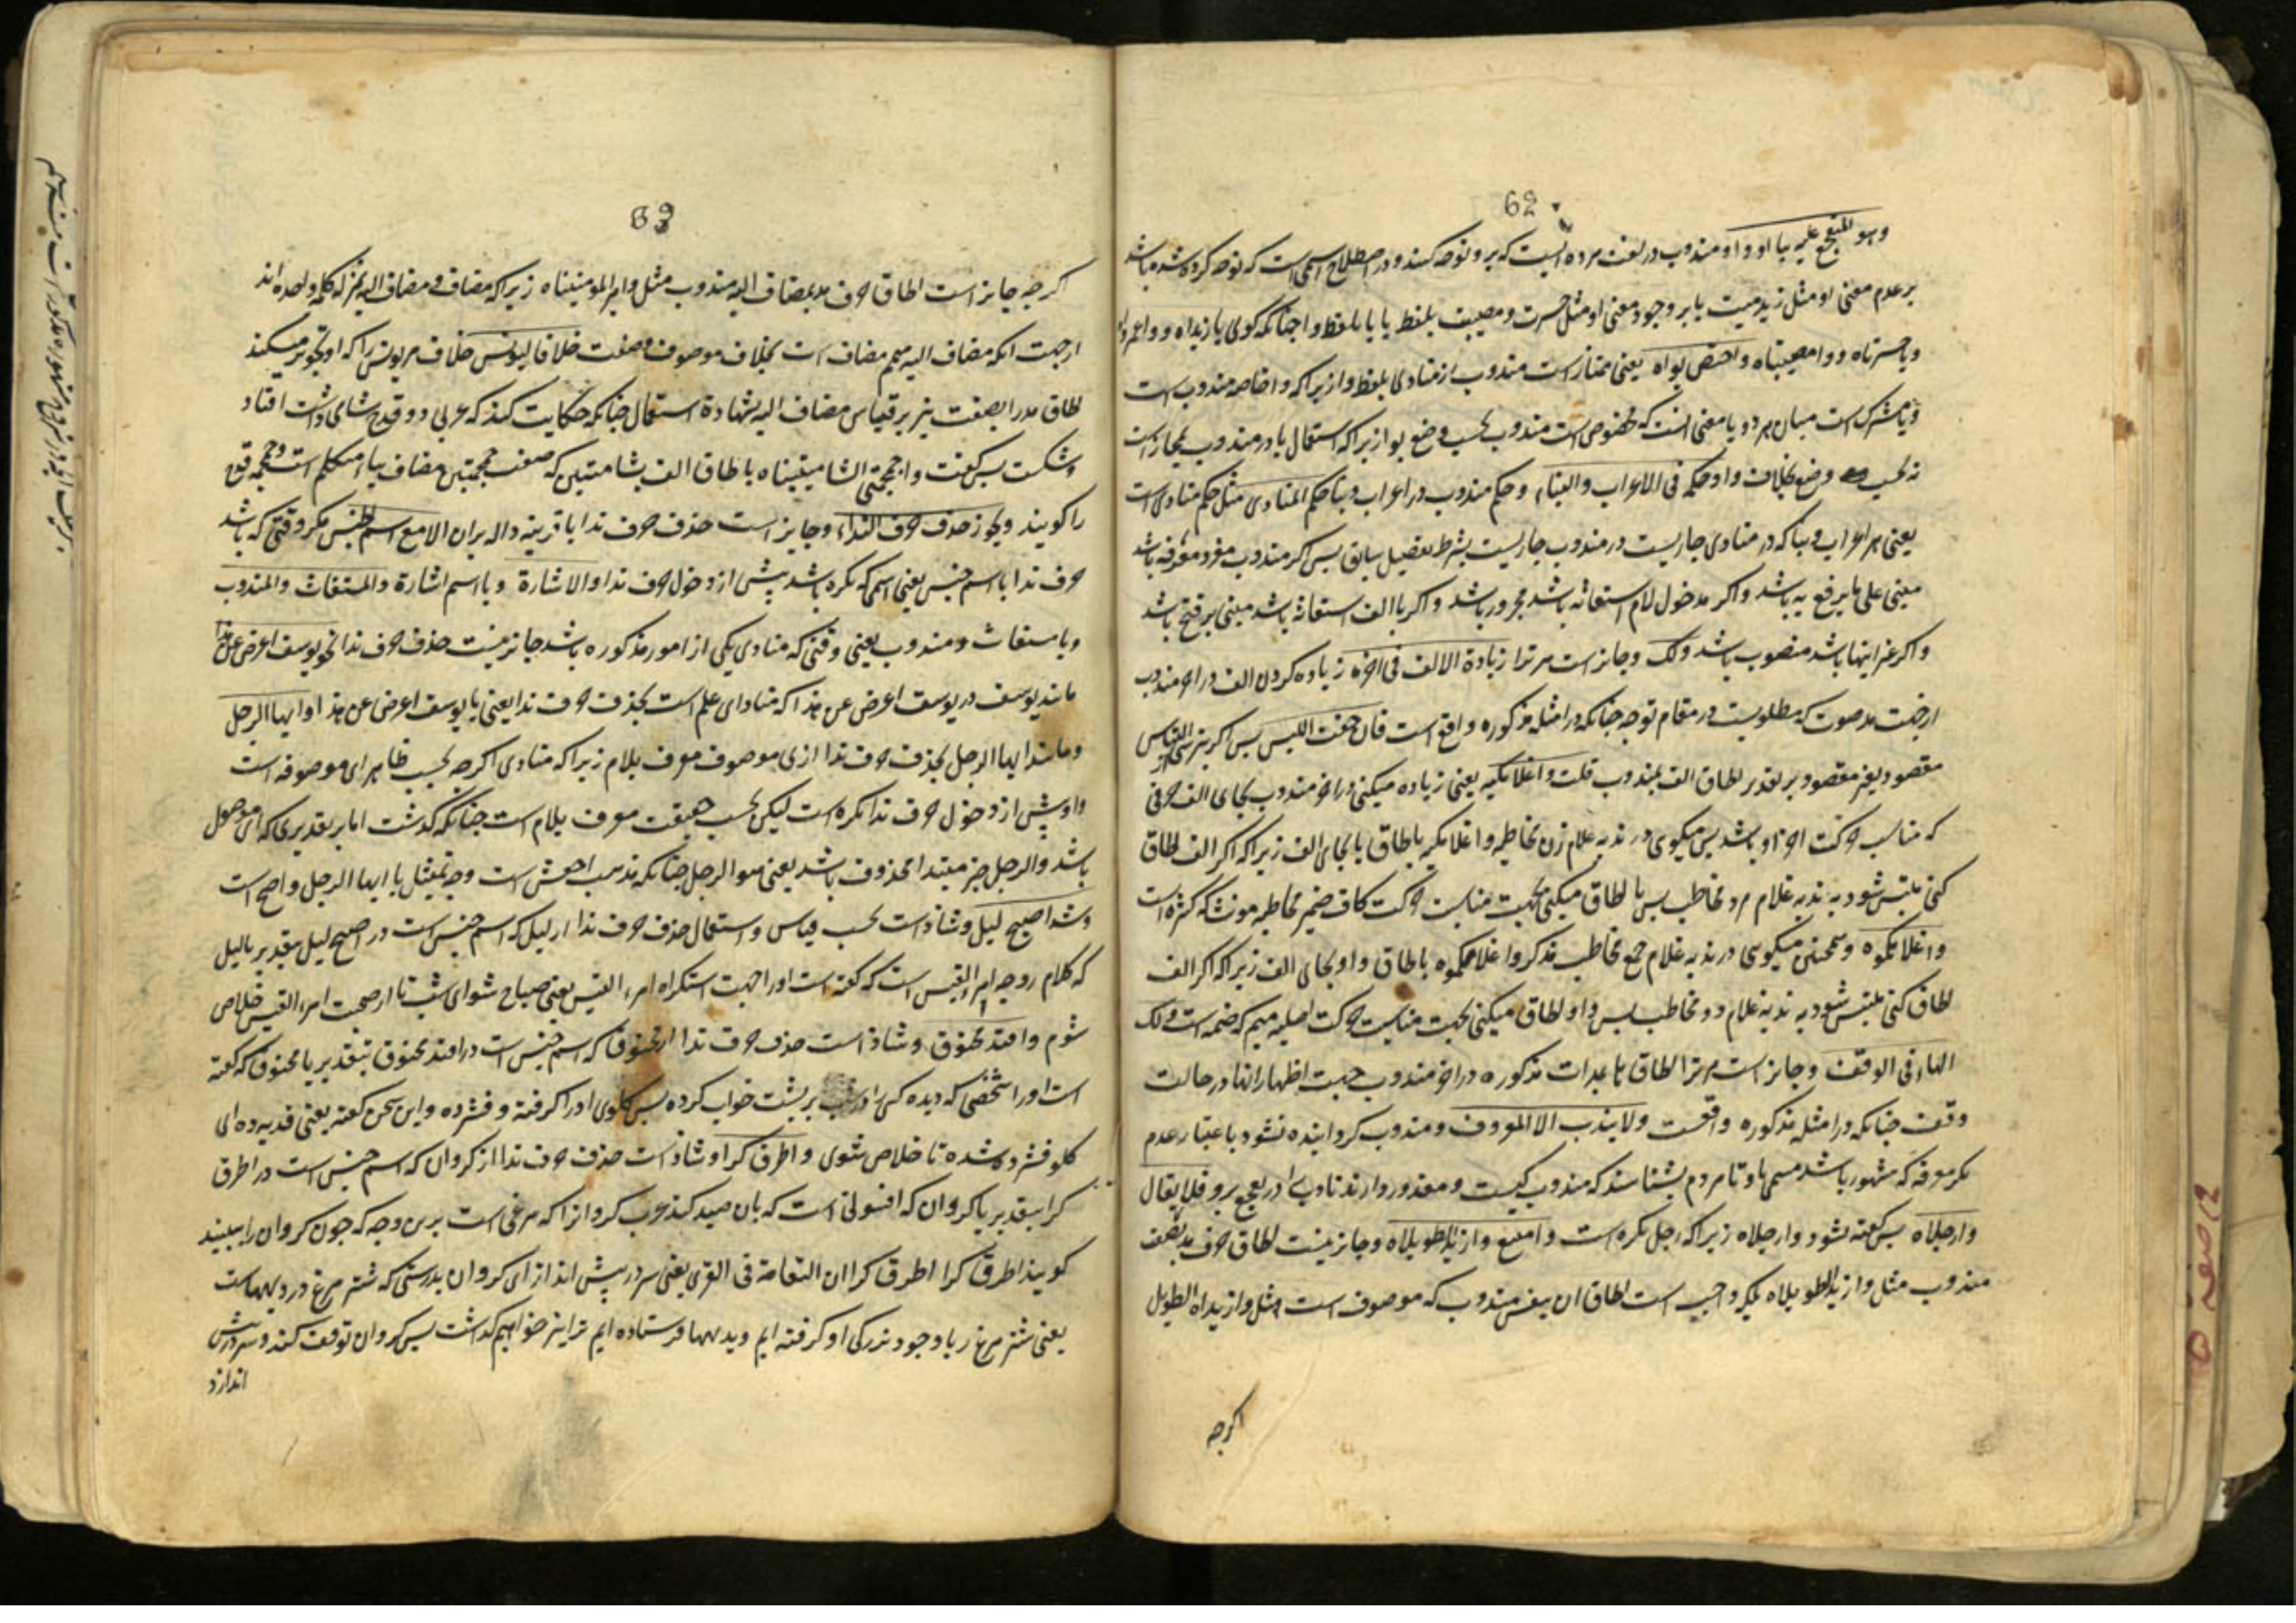 62
وهو المتفجع علیه بیا او وا و مندوب در لغت مرده ایست که برو نوحه کنند و در اصطلاح اسمی است که نوحه کرده شده باشد
بر عدم معنی او مثل زید میت یا بر وجود معنی او مثل حسرت و مصیبت بلفظ یا یا بلفظ وا چنانکه کوئی یا زیداه و وا عمرواه
و یا حسرتاه و وا مصیبتاه واختص بوا یعنی ممتاز است مندوب از منادی بلفظ وا زیرا که وا خاصه مندوب است
و یا مشترک است میان هر دو یا معنی انست که مخصوص است مندوب بحسب وضع بوا زیرا که استعمال یا در مندوب بمجاز است
نه بحسب وضع بخلاف وا و حکمه فی الاعراب والبناء و حکم مندوب در اعراب و بنا حکم المنادی مثل حکم منادی است
یعنی هر اعراب و بنا که در منادی جاریست در مندوب جاریست بشرط تفصیل سابق پس اکر مندوب مفرد معرفه باشد
مبنی علی ما یرفع به باشد و اکر مدخول لام استغاثه باشد مجرور باشد و اکر با الف استغاثه باشد مبنی بر فتح باشد
و اکر غیر اینها باشد منصوب باشد ولک و جایز است مر ترا زیادة الالف فی اخره زیاده کردن الف در اخر مندوب
از جهت مد صوت که مطلوبست در مقام نوحه چنانکه در امثله مذکوره واقع است فان خفت اللبس پس اکر بترسی التباس
مقصود بغیر مقصود بر تقدیر لحاق الف بمندوب قلت وا غلامکیه یعنی زیاده میکنی در اخر مندوب بجای الف حرفی
که مناسب حرکت اخر او باشد پس میکوی در ندبه غلام زن مخاطبه وا غلامکیه بالحاق یا بجای الف زیرا که اکر الف لحاق
کنی ملتبس شود به ندبه غلام مرد مخاطب پس یا لحاق میکنی بجهت مناسبت حرکت کاف ضمیر مخاطبه مونث که کسره است
وا غلامکموه و همچنین میکوی در ندبه غلام جمع مخاطب مذکر وا غلامکموه بالحاق واو بجای الف زیرا که اکر الف
لحاق کنی ملتبس شود به ندبه غلام دو مخاطب پس واو لحاق میکنی بجهت مناسبت حرکت اصلیه میم که ضمه است و لک
الهاء فی الوقف و جایز است مر ترا لحاق ها بمدات مذکوره در اخر مندوب جهت اظهار انها در حالت
وقف چنانکه در امثله مذکوره واقعست ولا یندب الا المعروف و مندوب کردانیده نشود باعتبار عدم
مکر معرفه که مشهور باشد مسمی باو تا مردم بشناسند که مندوب کیست و معذور دارند نادب را در تفجع برو فلا یقال
وا رجلاه پس کفته نشود وا رجلاه زیرا که رجل نکره است وامتنع وا زید الطویلاه و جایز نیست لحاق حرف مد بصفت
مندوب مثل وا زید الطویلاه بلکه واجب است لحاق ان بنفس مندوب که موصوف است مثل وا زیداه الطویل
اکرچه
63
اکرچه جایز است لحاق حرف مد بمضاف الیه مندوب مثل وا امیر المومنیناه زیرا که مضاف و مضاف الیه بمنزله کلمه واحده اند
از جهت انکه مضاف الیه متمم مضاف است بخلاف موصوف و صفت خلافا لیونس خلاف مر یونس را که او تجویز میکند
لحاق مد را بصفت نیز بر قیاس مضاف الیه بشهادة استعمال چنانکه حکایت کنند که عربی دو قدح شامی داشت افتاد
و شکست پس کفت وا جمجمتی الشامیتیناه بالحاق الف بشامیتین که صفت جمجمتین مضاف بیاء متکلم است و جمجمه قدح
را کویند ویجوز حذف حرف النداء و جایز است حذف حرف ندا با قرینه داله بران الا مع اسم الجنس مکر وقتی که باشد
حرف ندا با اسم جنس یعنی اسمی که نکره باشد پیش از دخول حرف ندا والاشارة و با اسم اشارة والمستغاث والمندوب
و با مستغاث و مندوب یعنی وقتی که منادی یکی از امور مذکوره باشد جایز نیست حذف حرف ندا نحو یوسف اعرض عن هذا
مانند یوسف در یوسف اعرض عن هذا که منادای علم است بحذف حرف ندا یعنی یا یوسف اعرض عن هذا وایها الرجل
و مانند ایها الرجل بحذف حرف ندا از ای موصوف معرف بلام زیرا که منادی اکرچه بحسب ظاهر ای موصوفه است
و او پیش از دخول حرف ندا نکره است لیکن بحسب حقیقت معرف بلام است چنانکه کذشت اما بر تقدیری که ای موصول
باشد و الرجل خبر مبتدا محذوف باشد یعنی هو الرجل چنانکه مذهب اخفش است وجه تمثیل با ایها الرجل واضح است
وشذ اصبح لیل و شاذ است بحسب قیاس و استعمال حذف حرف ندا از لیل که اسم جنس است در اصبح لیل بتقدیر یا لیل
که کلام زوجه امرء القیس است که کفته است او را جهت استکراه امرء القیس یعنی صباح شو ای شب تا از صحبت امرء القیس خلاص
شوم وافتد مخنوق و شاذ است حذف حرف ندا از مخنوق که اسم جنس است در افتد مخنوق بتقدیر یا مخنوق که کفته
است او را شخصی که دیده کسی را در شب بر پشت خواب کرده پس کلوی او را کرفته و فشرده و این سخن کفته یعنی فدیه ده ای
کلو فشرده شده تا خلاص شوی واطرق کرا و شاذ است حذف حرف ندا از کروان که اسم جنس است در اطرق
کرا بتقدیر یا کروان که افسونی است که بان صید کنند عرب کروانرا که مرغی است برین وجه که چون کروان را ببینند
کویند اطرق کرا اطرق کرا ان النعامة فی القری یعنی سر در پیش انداز ای کروان بدرستی که شتر مرغ در دیهاست
یعنی شتر مرغ را با وجود بزرکی او کرفته ایم و بدیهها فرستاده ایم ترا نیز نخواهیم کذاشت پس کروان توقف کند و سر در پیش
اندازد